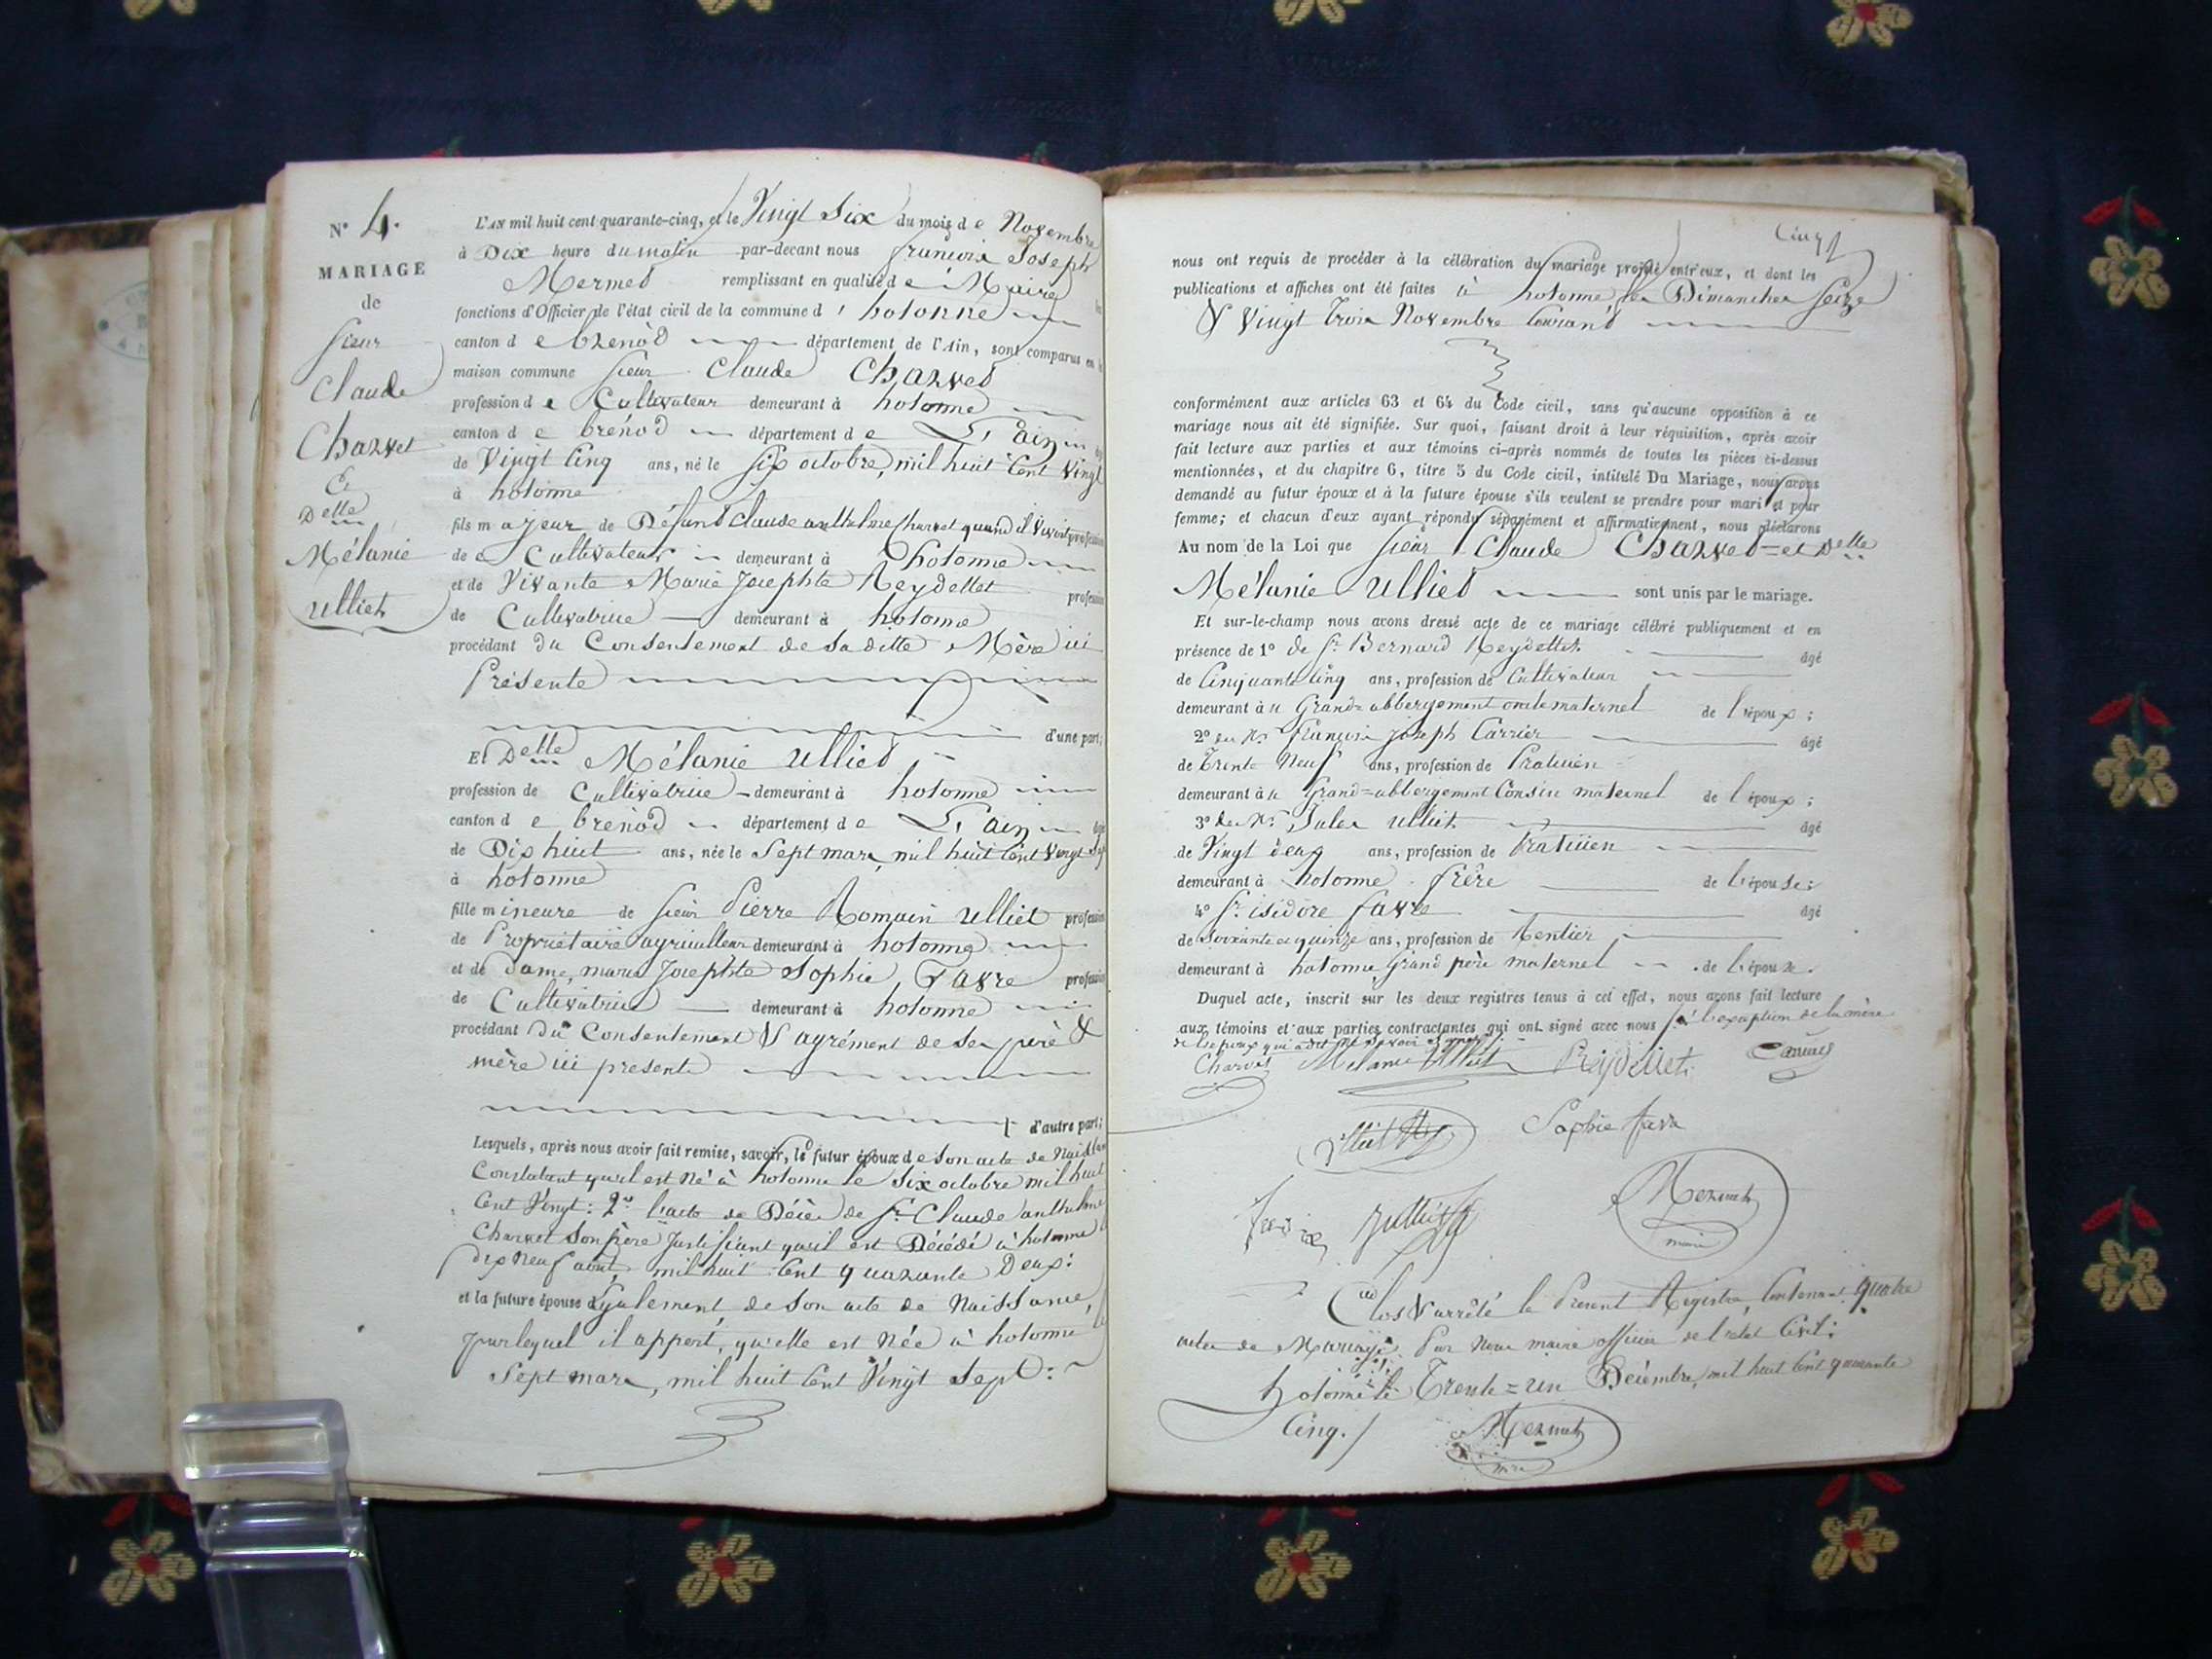 N° 4.
MARIAGE
de
sieur
Claude
Charvet
Et
Delle
Mélanie
Ulliet
L'AN mil huit cent quarante-cinq, et le Vingt Six du mois de Novembre
à Dix heure du matin par-devant nous françois Joseph
Mermet remplissant en qualité de Maire
fonctions d'Officier de l'état civil de la commune d'hotonne
canton de brenòd département de l'Ain, sont comparus en la
maison commune sieur Claude Charvet
profession de Cultivateur demeurant à hotonne
canton de brénod département de L'ain
de Vingt Cinq ans, né le Six octobre, mil huit Cent Vingt
à hotonne
fils majeur de Défunt Claude anthelme Charvet quand il vivoit profession
de Cultivateur demeurant à hotonne
et de Vivante Marie Josephte Reydellet profession
de Cultivatrice demeurant à hotonne
procédant du Consentement de sa ditte Mère ici
Présente
d'une part;
Et Delle Mélanie Ulliet
profession de Cultivatrice demeurant à hotonne
canton de brenod département de L'ain
de Dix huit ans, née le Sept mars, mil huit Cent Vingt Sept
à hotonne
fille mineure de sieur Pierre Romain Ulliet profession
de Propriétaire agriculteur demeurant à hotonne
et de Dame, marie Josephte Sophie Favre profession
de Cultivatrice demeurant à hotonne
procédant du Consentement & agrément de ses père &
mère ici présents
d'autre part;
Lesquels, après nous avoir fait remise, savoir, le futur époux de Son acte de Naissance
Constatant qu'il est Né à hotonne le Six octobre mil huit
Cent Vingt: 2° l'acte de Décès de Sr Claude anthelme
Charvet Son père Justifiant qu'il est Décédé à hotonne
dix Neuf août, mil huit Cent quarante Deux:
et la future épouse Également, de Son acte de Naissance,
par lequel il appert, qu'elle est Née à hotonne le
Sept mars, mil huit Cent Vingt Sept:
Cinq
nous ont requis de procéder à la célébration du mariage projeté entr'eux, et dont les
publications et affiches ont été faites à hotonne, les Dimanches Seize
& Vingt trois Novembre Courant
conformément aux articles 63 et 64 du Code civil, sans qu'aucune opposition à ce
mariage nous ait été signifiée. Sur quoi, faisant droit à leur réquisition, après avoir
fait lecture aux parties et aux témoins ci-après nommés de toutes les pièces ci-dessus
mentionnées, et du chapitre 6, titre 5 du Code civil, intitulé Du Mariage, nous avons
demandé au futur époux et à la future épouse s'ils veulent se prendre pour mari et pour
femme; et chacun d'eux ayant répondu séparément et affirmativement, nous déclarons
Au nom de la Loi que sieur Claude Charvet et Delle
Mélanie Ulliet sont unis par le mariage.
Et sur-le-champ nous avons dressé acte de ce mariage célébré publiquement et en
présence de 1° de Sr Bernard Reydellet âgé
de Cinquante Cinq ans, profession de Cultivateur
demeurant à u Grand=abbergement oncle maternel de l'époux;
2° françois Joseph Carrier âgé
de Trente Neuf ans, profession de Praticien
demeurant à u Grand=abbergement Cousin maternel de l'époux;
3° Jules Ulliet âgé
de Vingt deux ans, profession de Praticien
demeurant à hotonne frère de l'épouse;
4° Sr isidore favre âgé
de Soixante et quinze ans, profession de Rentier
demeurant à hotonne Grand père maternel de l'épouse.
Duquel acte, inscrit sur les deux registres tenus à cet effet, nous avons fait lecture
aux témoins et aux parties contractantes qui ont signé avec nous à l'exception de la mère
de l'epoux qui a dit ne savoir signer
Charvet Mélanie Ulliet Reydellet Carrier
Ulliet Sophie favre
Ulliet Mermet
maire
Clos & arrêté le Présent Registre, Contenant quatre
actes de Mariage Par Nous maire officier de l'état Civil:
hotonne le Trente=un Décembre, mil huit Cent quarante
Cinq.
Mermet